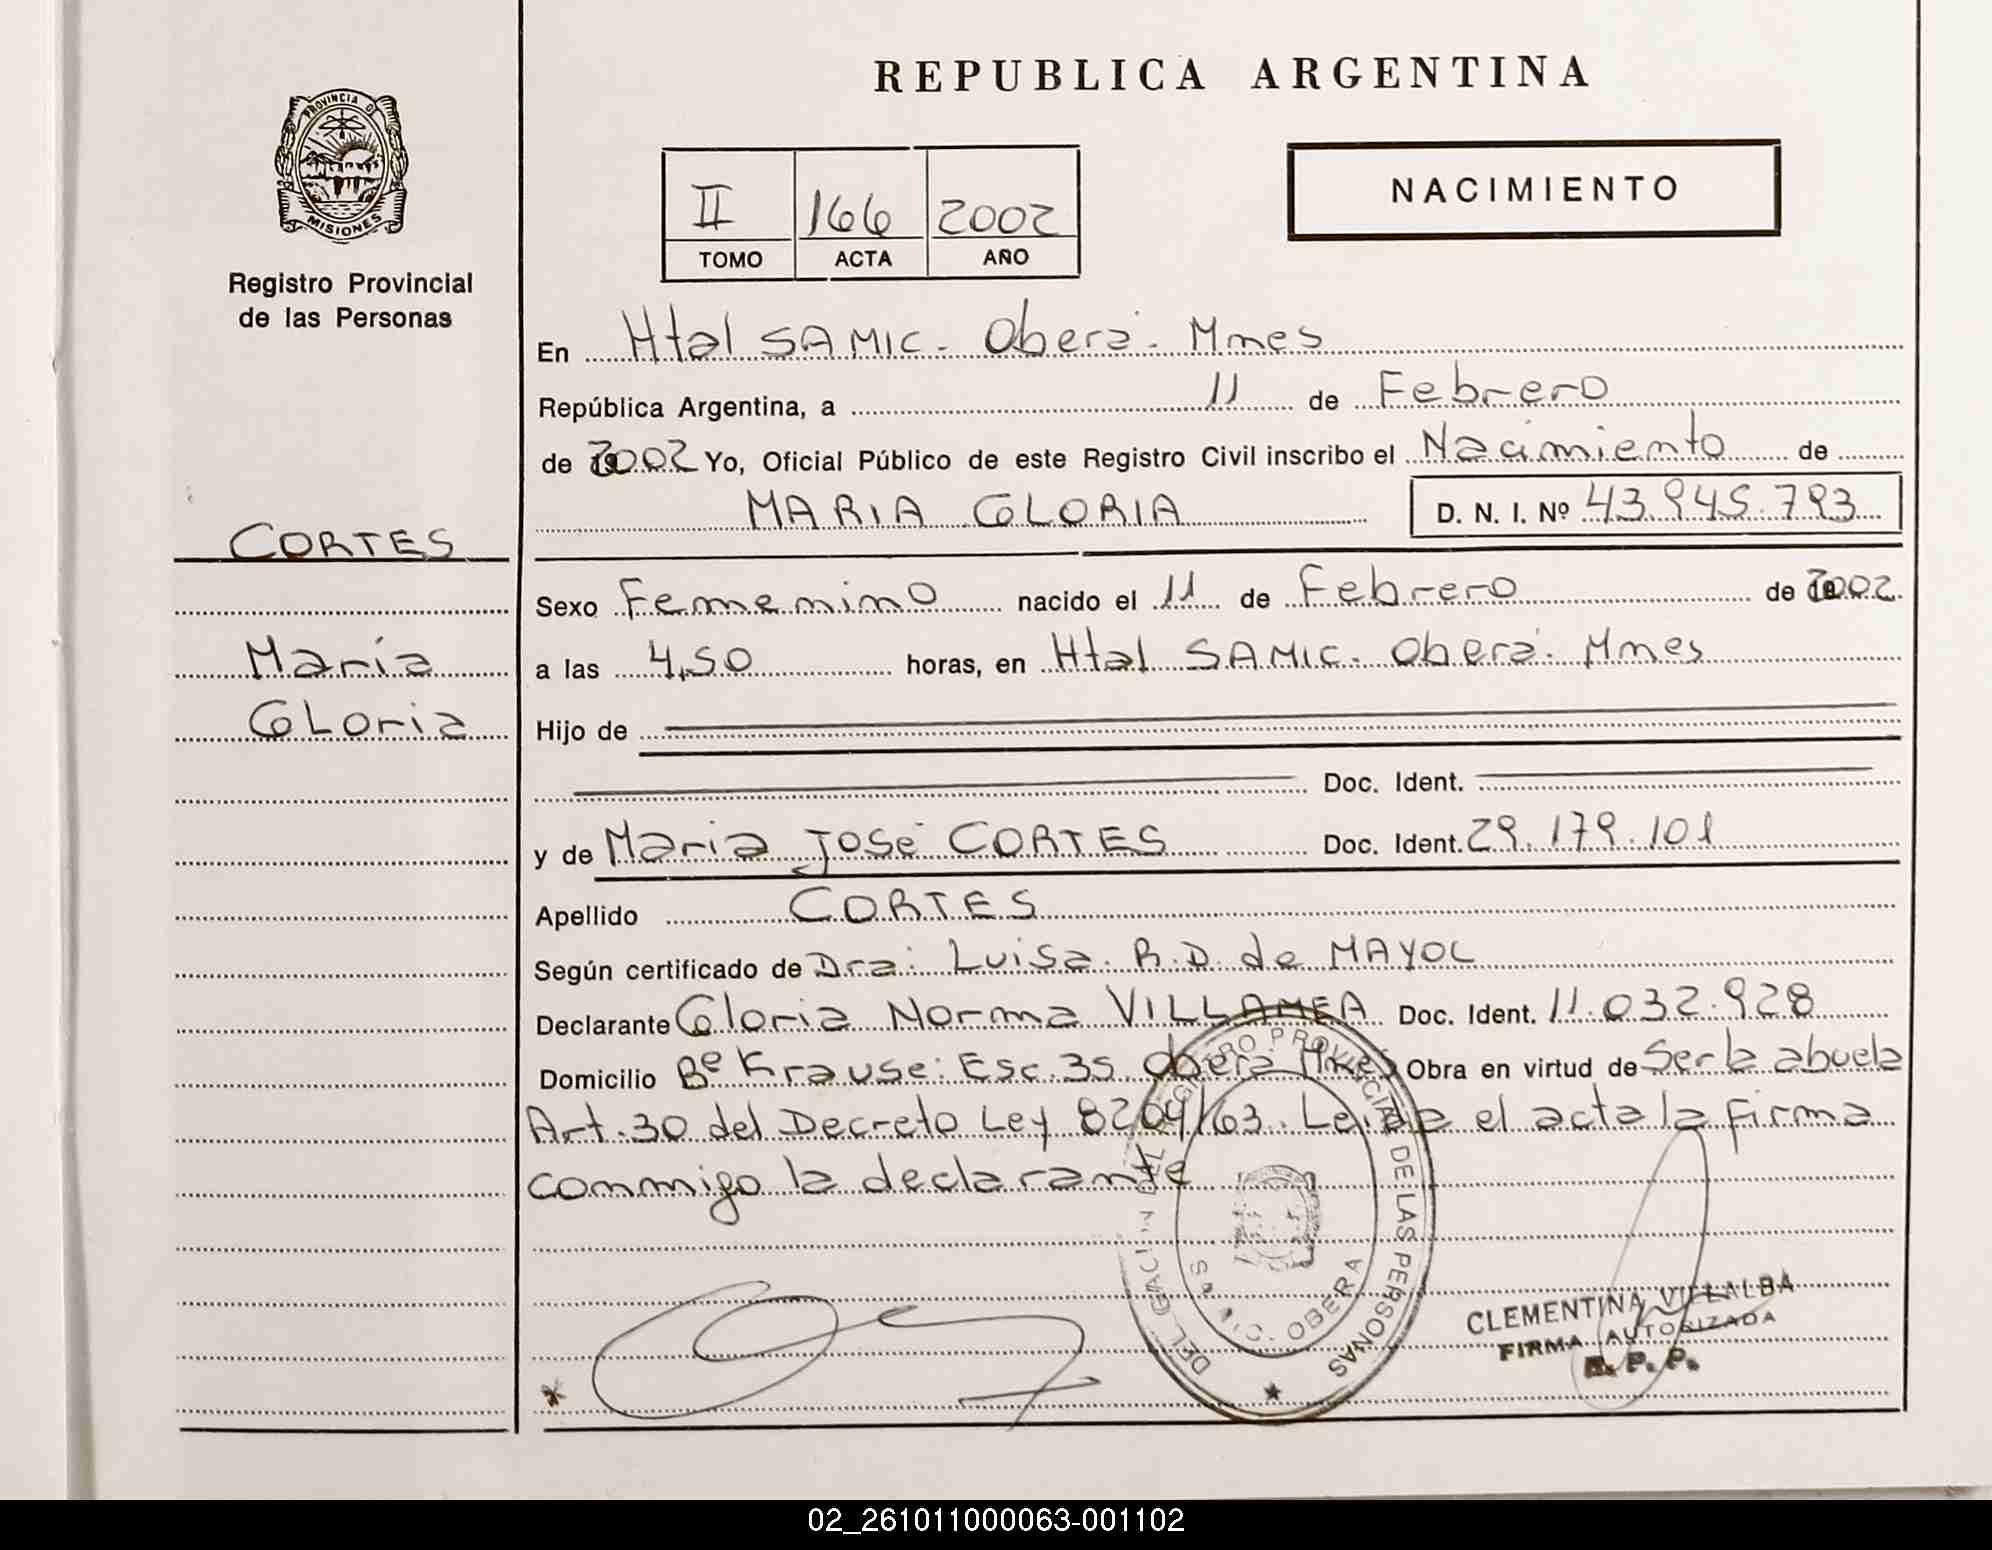 REPUBLICA ARGENTINA
PROVINCIA D
MISIONES
Registro Provincial
de las Personas
NACIMIENTO
II 166 2002
TOMO ACTA AÑO
En Htal SAMIC. Oberá. Mnes
República Argentina, a 11 de Febrero
de 2002 Yo, Oficial Público de este Registro Civil inscribo el Nacimiento de
MARIA GLORIA D. N. I. Nº 43.945.793
CORTES
María
Gloria
Sexo Femenino nacido el 11 de Febrero de 2002.
a las 4,50 horas, en Htal SAMIC. Oberá. Mnes
Hijo de
Doc. Ident.
y de Maria José CORTES Doc. Ident. 29.179.101
Apellido CORTES
Según certificado de Dra: Luisa. R.D. de MAYOL
Declarante Gloria Norma Doc. Ident. 11.032.928
Domicilio Bº Krause: Esc. 35. Oberá Mnes Obra en virtud de Ser la abuela
Art. 30 del Decreto Ley 8204/63. Leida el acta la firma
conmigo la declarante
REGISTRO PROVINCIAL DE LAS PERSONAS
OBERA
CLEMENTINA VILLALBA
FIRMA AUTORIZADA
R. P. P.
02_261011000063-001102